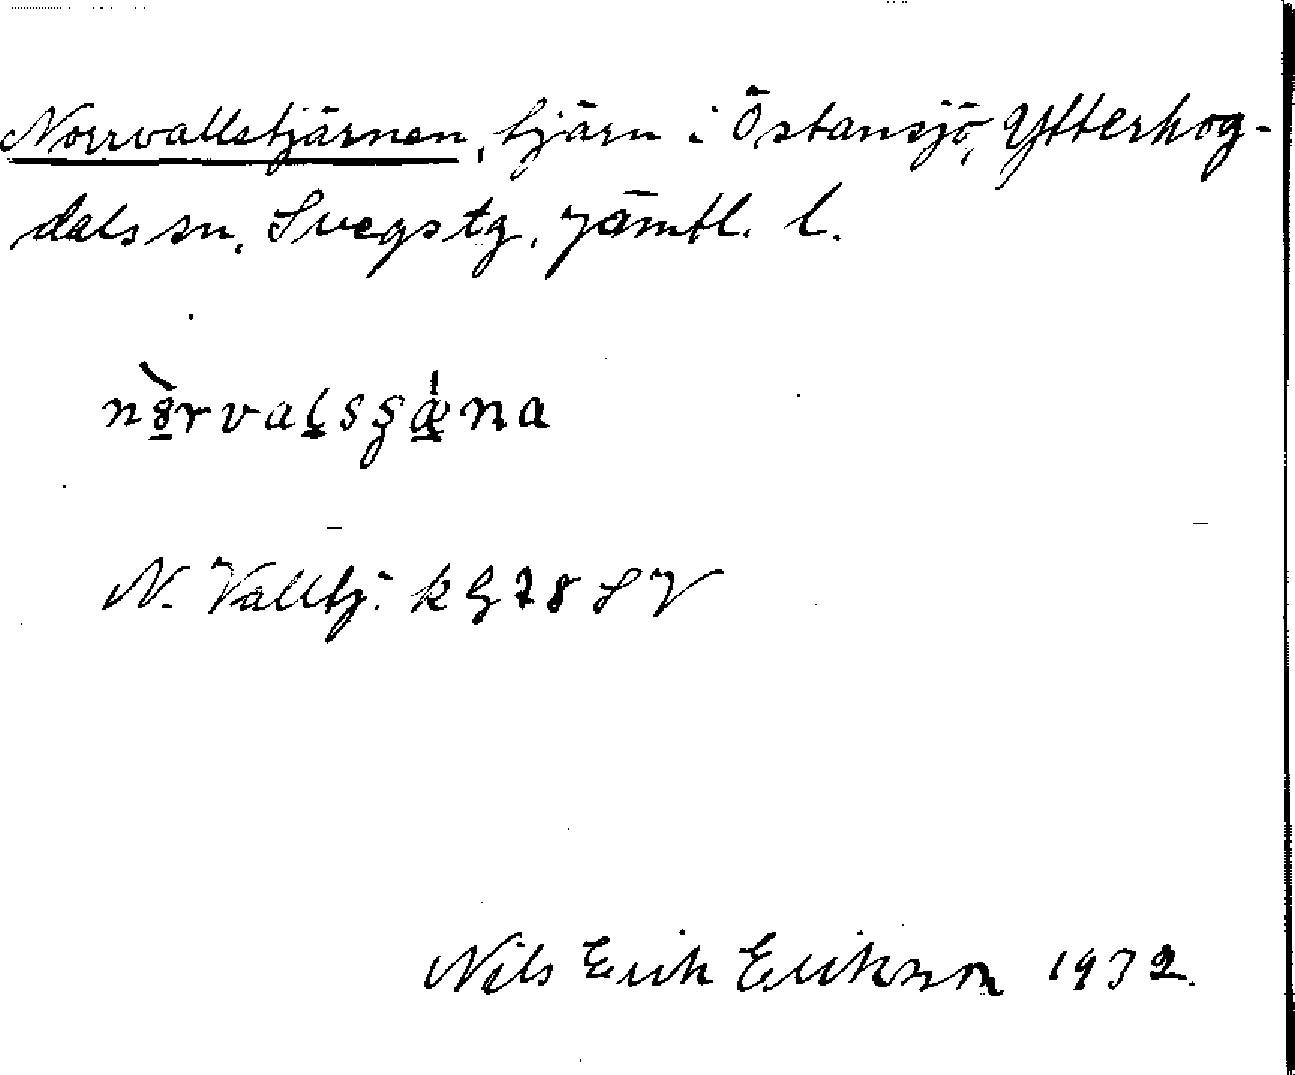 Norrvallstjärnen, tjärn i Östansjö, Ytterhog-
dals sn, Svegs tg, Jämtl. l.
N. Valltj. k G 28 S V
Nils Erik Erikson 1932.